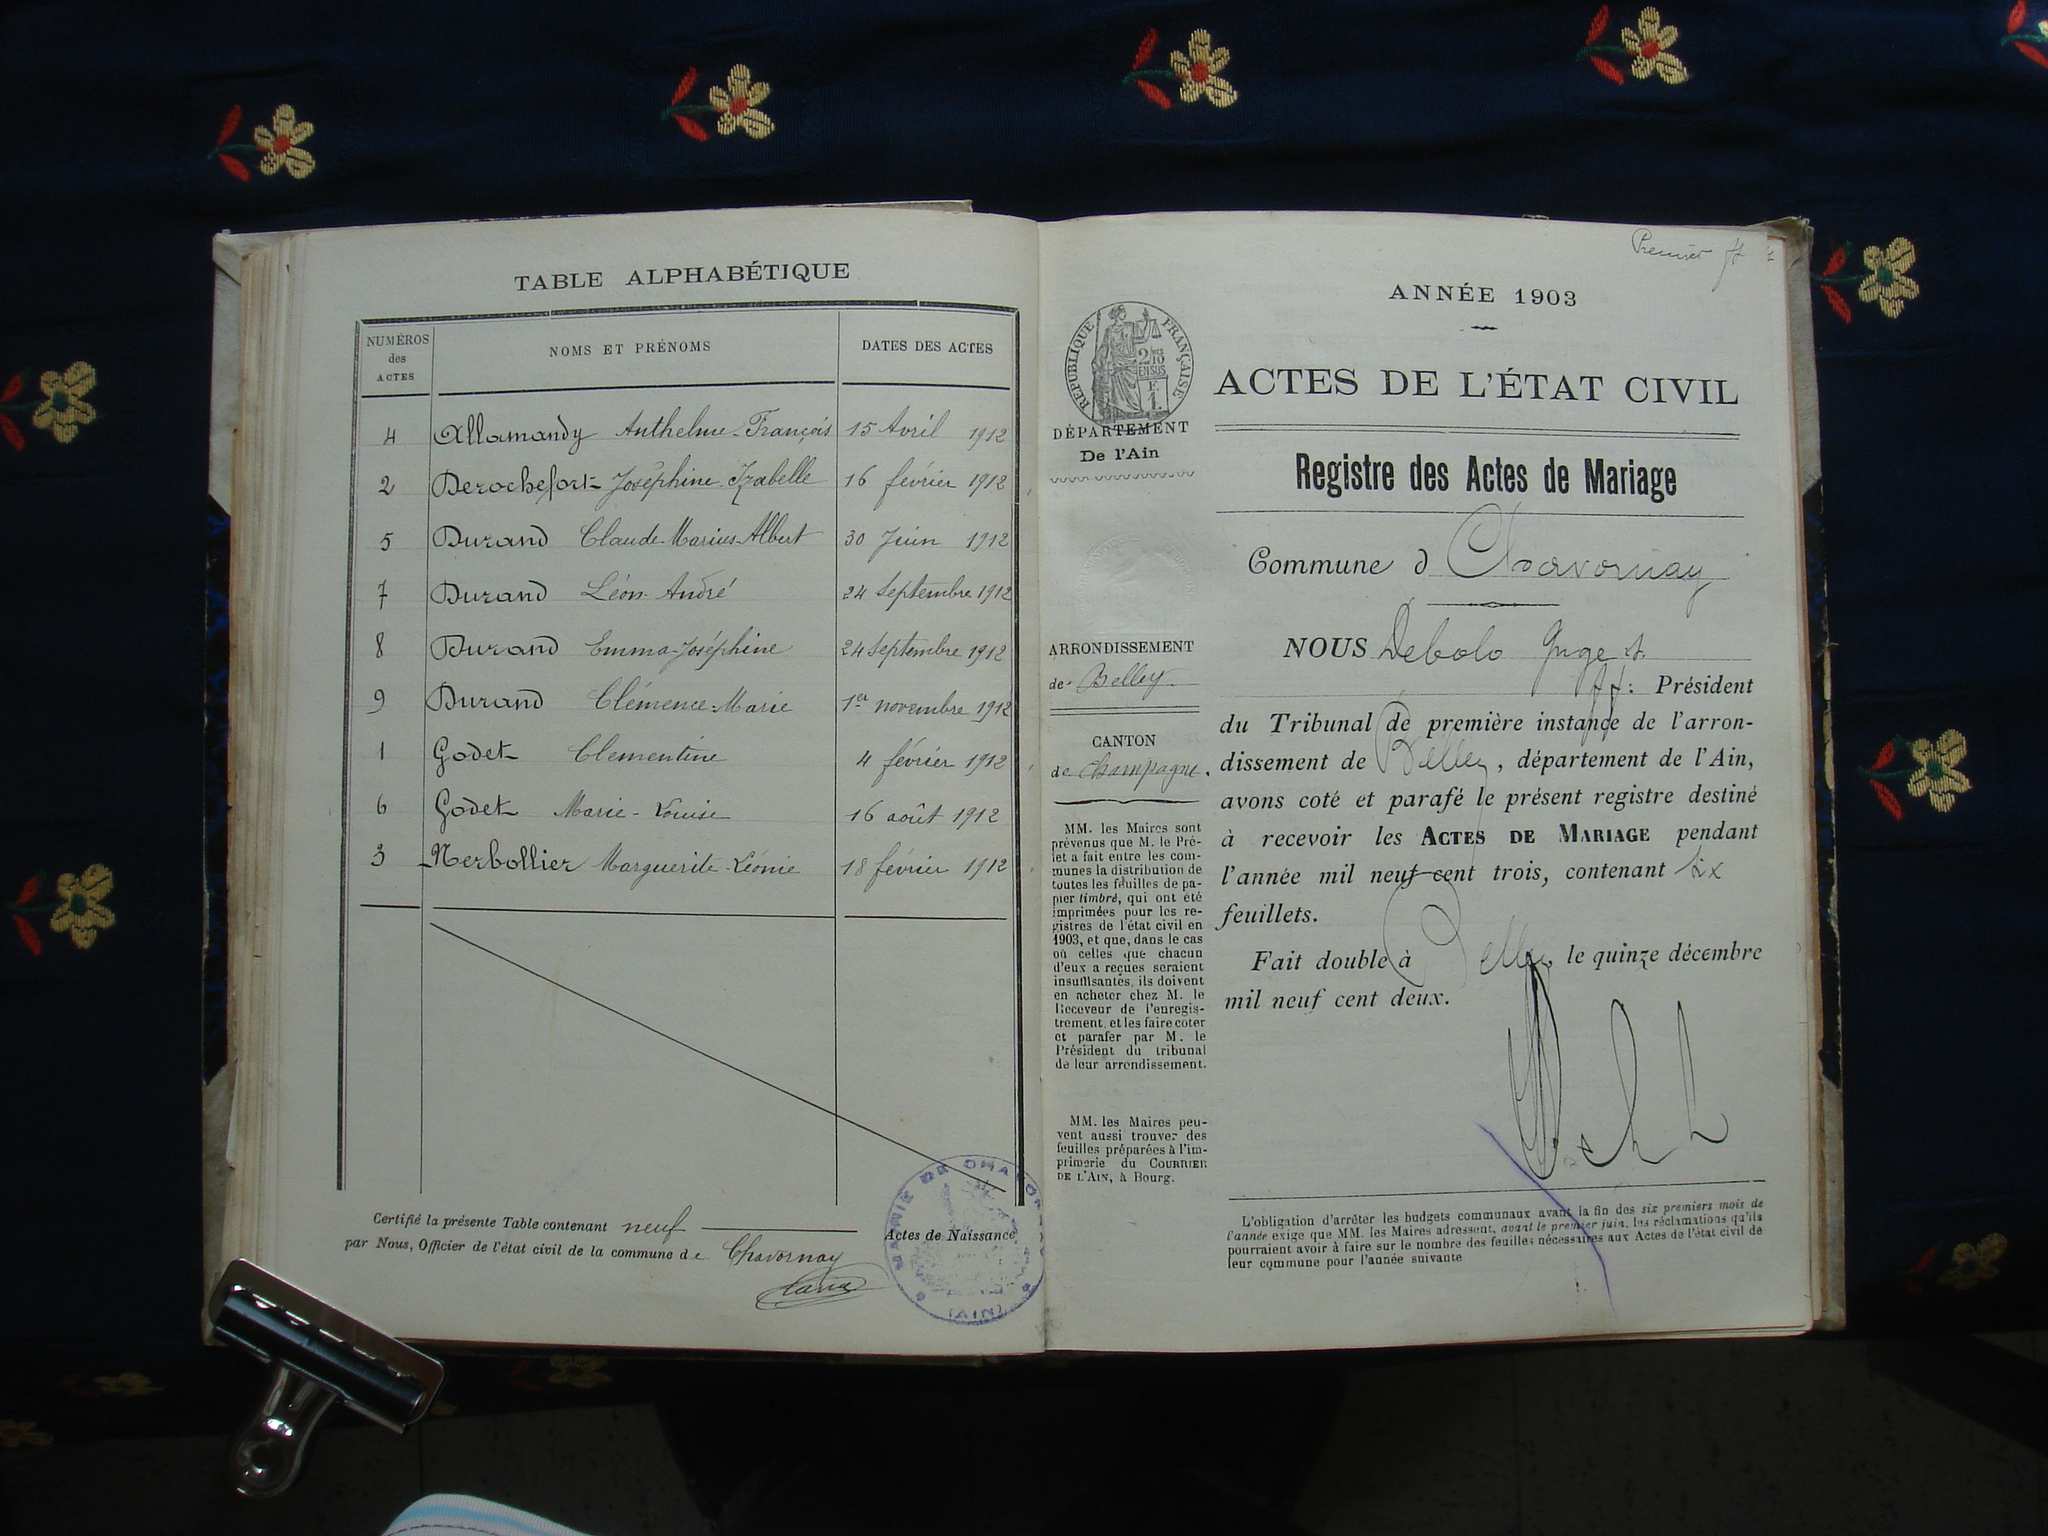 TABLE ALPHABÉTIQUE
NUMÉROS des ACTES NOMS ET PRÉNOMS DATES DES ACTES
4 Allamandy Anthelme-François 15 Avril 1912
2 Derochefort Joséphine-Izabelle 16 février 1912
5 Durand Claude-Marius-Albert 30 Juin 1912
7 Durand Léon-André 24 Septembre 1912
8 Durand Emma-Joséphine 24 Septembre 1912
9 Durand Clémence-Marie 1er novembre 1912
1 Godet Clementine 4 février 1912
6 Godet Marie-Louise 16 août 1912
3 Merbollier Marguerite-Léonie 18 février 1912
Certifié la présente Table contenant neuf Actes de Naissance
par Nous, Officier de l'état civil de la commune de Chavornay
MAIRIE DE CHAVORNAY
(AIN)
Premier
ANNÉE 1903
RÉPUBLIQUE FRANÇAISE
ACTES DE L'ÉTAT CIVIL
DÉPARTEMENT
De l'Ain
Registre des Actes de Mariage
Commune d Chavornay
ARRONDISSEMENT
de Belley
CANTON
de Champagne.
MM. les Maires sont
prévenus que M. le Pré-
fet a fait entre les com-
munes la distribution de
toutes les feuilles de pa-
pier timbré, qui ont été
imprimées pour les re-
gistres de l'état civil en
1903, et que, dans le cas
où celles que chacun
d'eux a reçues seraient
insuffisantes, ils doivent
en acheter chez M. le
Receveur de l'enregis-
trement, et les faire coter
et parafer par M. le
Président du tribunal
de leur arrondissement.
MM. les Maires peu-
vent aussi trouver des
feuilles préparées à l'im-
primerie du COURRIER
DE L'AIN, à Bourg.
NOUS Debolo Juge
ff: Président
du Tribunal de première instance de l'arron-
dissement de Belley, département de l'Ain,
avons coté et parafé le présent registre destiné
à recevoir les ACTES DE MARIAGE pendant
l'année mil neuf cent trois, contenant six
feuillets.
Fait double à Belley, le quinze décembre
mil neuf cent deux.
L'obligation d'arrêter les budgets communaux avant la fin des six premiers mois de
l'année exige que MM. les Maires adressent, avant le premier juin, les réclamations qu'ils
pourraient avoir à faire sur le nombre des feuilles nécessaires aux Actes de l'état civil de
leur commune pour l'année suivante